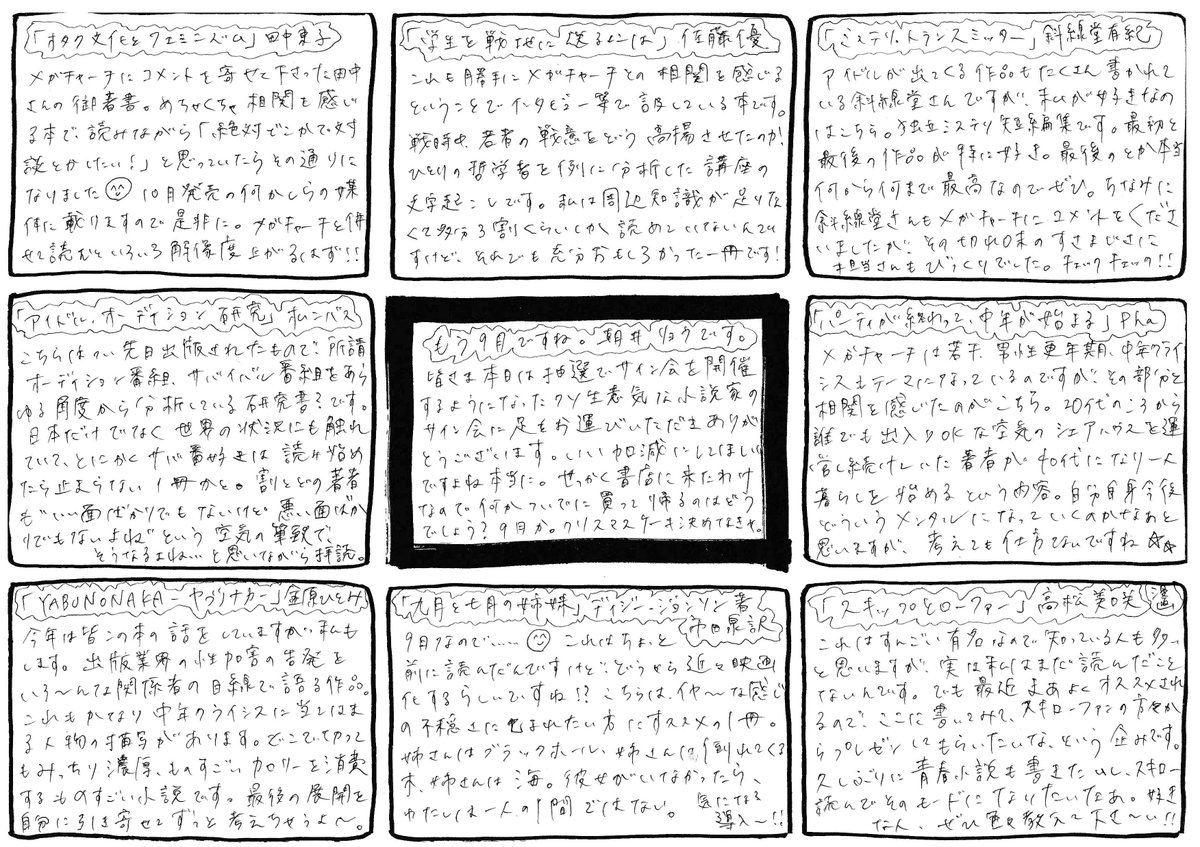 「オタク文化とフェミニズム」田中東子
メガチャーチにコメントを寄せて下さった田中
さんの御著書。めちゃくちゃ相関を感じ
る本で、読みながら「絶対どこかで対
談とかしたい!」と思っていたらその通りに
なりました😊 10月発売の何かしらの媒
体に載りますので是非に。メガチャーチと併
せて読むといろいろ解像度上がるはず!!
「学生を戦地に送るには」佐藤優
これも勝手にメガチャーチとの相関を感じる
ということでインタビュー等で話している本です。
戦時中、若者の戦意をどう高揚させたのか!
ひとりの哲学者を例に分析した講座の
文字起こしです。私は周辺知識が足りな
くて多分3割くらいしか読めていないんで
すけど、それでも充分おもしろかった一冊です!
「ミステリ・トランスミッター」斜線堂有紀
アイドルが出てくる作品もたくさん書かれて
いる斜線堂さんですが、私が好きなの
はこちら。独立ミステリ短編集です。最初と
最後の作品が特に好き。最後のとか本当
何から何まで最高なのでぜひ。ちなみに
斜線堂さんもメガチャーチにコメントをくださ
いましたが、その切れ味のすさまじさに
担当さんもびっくりでした。チェックチェック!!
「アイドル・オーディション研究」オムニバス
こちらはつい先日出版されたもので、所謂
オーディション番組、サバイバル番組をあら
ゆる角度から分析している研究書?です。
日本だけでなく世界の状況にも触れ
ていて、とにかくサバ番好きは読み始め
たら止まらない1冊かと。割とどの著者
も“いい面ばかりでもないけど悪い面ばか
りでもないよね”という空気の筆致で、
そうなるよね…と思いながら拝読。
もう9月ですね。朝井リョウです。
皆さま本日は抽選でサイン会を開催
するようになったクソ生意気な小説家の
サイン会に足をお運びいただきありが
とうございます。いい加減にしてほしい
ですよね本当に。せっかく書店に来たわけ
なので何かついでに買って帰るのはどう
でしょう?9月か。クリスマスケーキ決めなきゃ。
「パーティーが終わって、中年が始まる」pha
メガチャーチは若干男性更年期、中年クライ
シスもテーマになっているのですが、その部分と
相関を感じたのがこちら。20代のころから
誰でも出入りOKな空気のシェアハウスを運
営し続けていた著者が40代になり一人
暮らしを始めるという内容。自分自身今後
どういうメンタルになっていくのかなあと
思いますが、考えても仕方ないですね☆☆
「YABUNONAKA-ヤブノナカ-」金原ひとみ
今年は皆この本の話をしていますが私も
します。出版業界の性加害の告発を
いろ〜んな関係者の目線で語る作品。
これもかなり中年クライシスに当てはま
る人物の描写があります。どこで切って
もみっちり濃厚、ものすごいカロリーを消費
するものすごい小説です。最後の展開を
自分に引き寄せてずっと考えちゃうよ〜。
「九月と七月の姉妹」デイジー・ジョンソン著
市田泉訳
9月なので……😊 これはちょっと
前に読んだんですけど、どうやら近々映画
化するらしいですね!?こちらは、イヤ〜な感じ
の不穏さに包まれたい方にオススメの1冊。
姉さんはブラックホール、姉さんは倒れてくる
木、姉さんは海。彼女がいなかったら、
わたしは一人の人間ではない。気になる
導入〜!!
「スキップとローファー」高松美咲 漫
これはすんごい有名なので知っている人も多い
と思いますが、実は私はまだ読んだこと
ないんです。でも最近まあよくオススメされ
るので、ここに書いてみて、スキローファンの方々か
らプレゼンしてもらいたいな、という企みです。
久しぶりに青春小説も書きたいし、スキロー
読んでそのモードになりたいなあ。好き
な人、ぜひ色々教えて下さ〜い!!